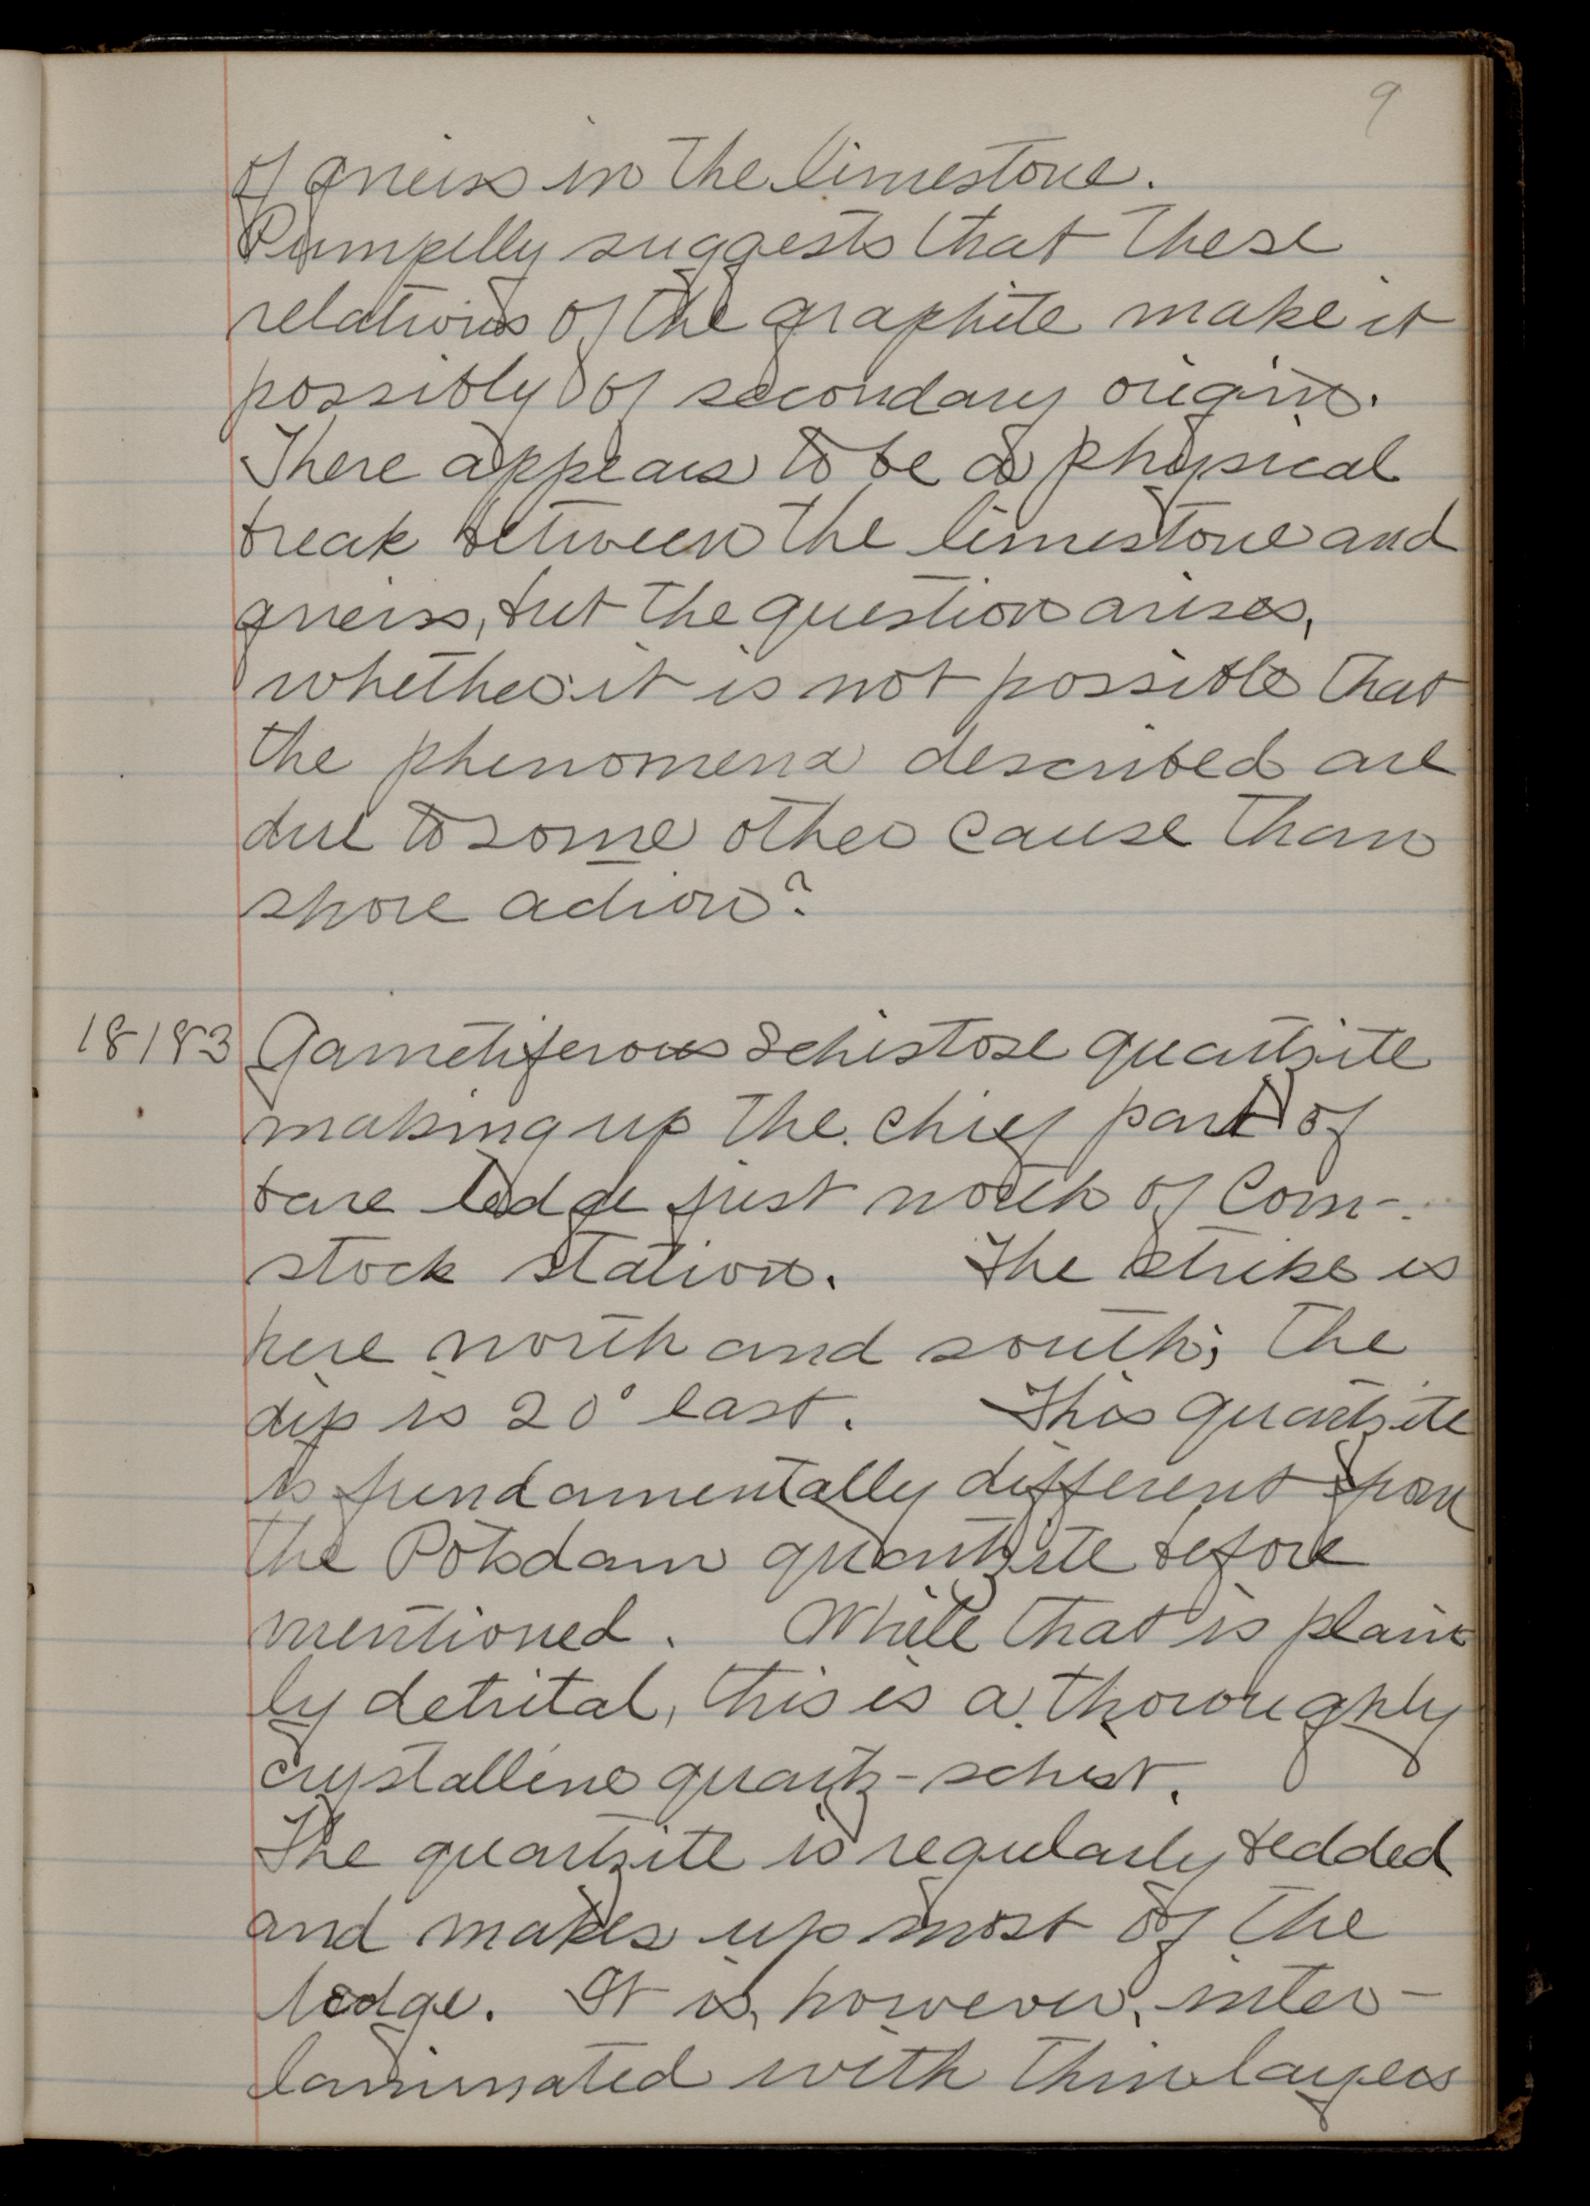 9
of gneiss in the limestone.
Pumpelly suggests that these
relations of the graphite make it
possibly of secondary origin.
There appears to be a physical
break between the limestone and
gneiss, but the question arises,
whether it is not possible that
the phenomena described are
due to some other cause than
shore action?
18183 Garnetiferous schistose quartzite
making up the chief part of
bare ledge just north of Com-
stock station. The strike is
here north and south; the
dip is 20° east. This quartzite
is fundamentally different from
the Potsdam quartzite before
mentioned. While that is plain
ly detrital, this is a thoroughly
crystalline quartz-schist.
The quartzite is regularly bedded
and makes up most of the
ledge. It is, however, inter-
laminated with thin layers